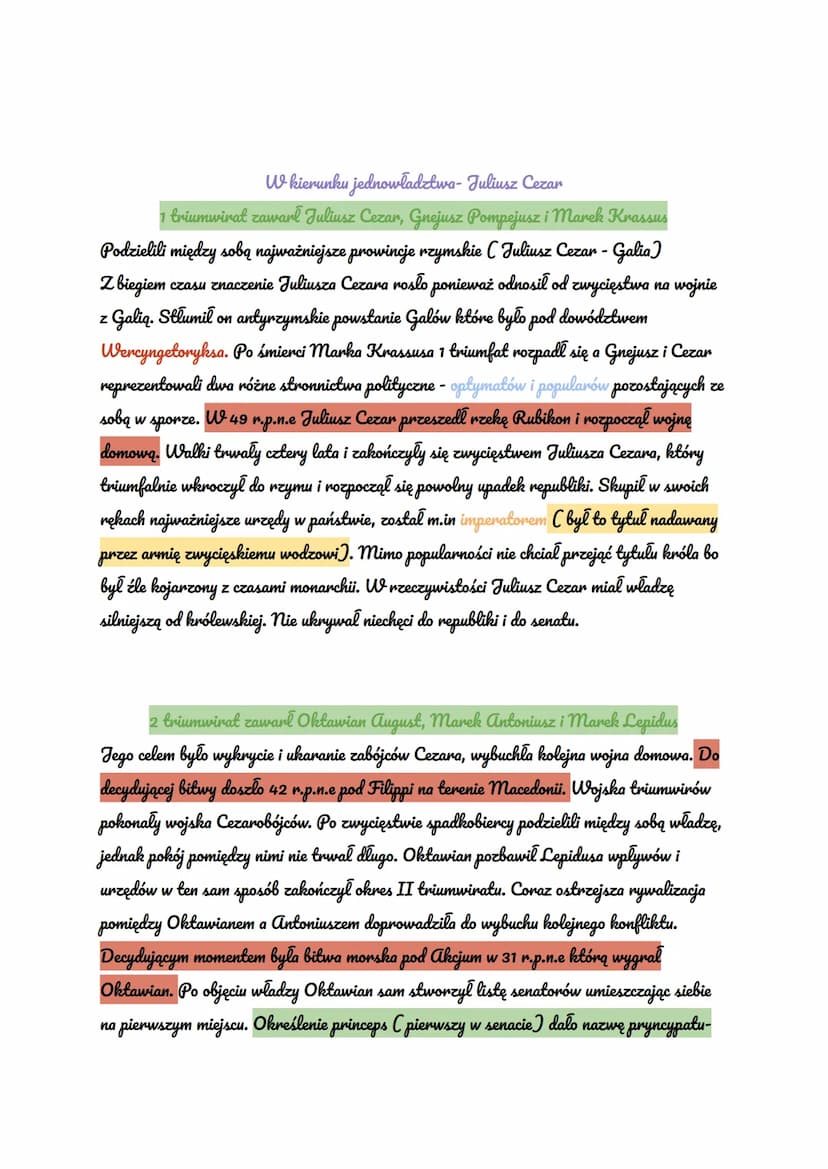 W kierunku jednowładztwa- Juliusz Cezar
1 triumwirat zawarł Juliusz Cezar, Gnejusz Pompejusz i Marek Krassus
Podzielili między sobą najważniejsze prowincje rzymskie ( Juliusz Cezar - Galia)
Z biegiem czasu znaczenie Juliusza Cezara rosło ponieważ odnosił od zwycięstwa na wojnie
z Galią. Stłumił on antyrzymskie powstanie Galów które było pod dowództwem
Wercyngetoryksa. Po śmierci Marka Krassusa 1 triumfat rozpadł się a Gnejusz i Cezar
reprezentowali dwa różne stronnictwa polityczne - optymatów i popularów pozostających ze
sobą w sporze. W 49 r.p.n.e Juliusz Cezar przeszedł rzekę Rubikon i rozpoczął wojnę
domową. Walki trwały cztery lata i zakończyły się zwycięstwem Juliusza Cezara, który
triumfalnie wkroczył do rzymu i rozpoczął się powolny upadek republiki. Skupił w swoich
rękach najważniejsze urzędy w państwie, został m.in imperatorem ( był to tytuł nadawany
przez armię zwycięskiemu wodzowi). Mimo popularności nie chciał przejąć tytułu króla bo
był źle kojarzony z czasami monarchii. W rzeczywistości Juliusz Cezar miał władzę
silniejszą od królewskiej. Nie ukrywał niechęci do republiki i do senatu.
2 triumwirat zawarł Oktawian August, Marek Antoniusz i Marek Lepidus
Jego celem było wykrycie i ukaranie zabójców Cezara, wybuchła kolejna wojna domowa. Do
decydującej bitwy doszło 42 r.p.n.e pod Filippi na terenie Macedonii. Wojska triumwirów
pokonały wojska Cezarobójców. Po zwycięstwie spadkobiercy podzielili między sobą władzę,
jednak pokój pomiędzy nimi nie trwał długo. Oktawian pozbawił Lepidusa wpływów i
urzędów w ten sam sposób zakończył okres II triumwiratu. Coraz ostrzejsza rywalizacja
pomiędzy Oktawianem a Antoniuszem doprowadziła do wybuchu kolejnego konfliktu.
Decydującym momentem była bitwa morska pod Akcjum w 31 r.p.n.e którą wygrał
Oktawian. Po objęciu władzy Oktawian sam stworzył listę senatorów umieszczając siebie
na pierwszym miejscu. Określenie princeps ( pierwszy w senacie) dało nazwę pryncypatu-